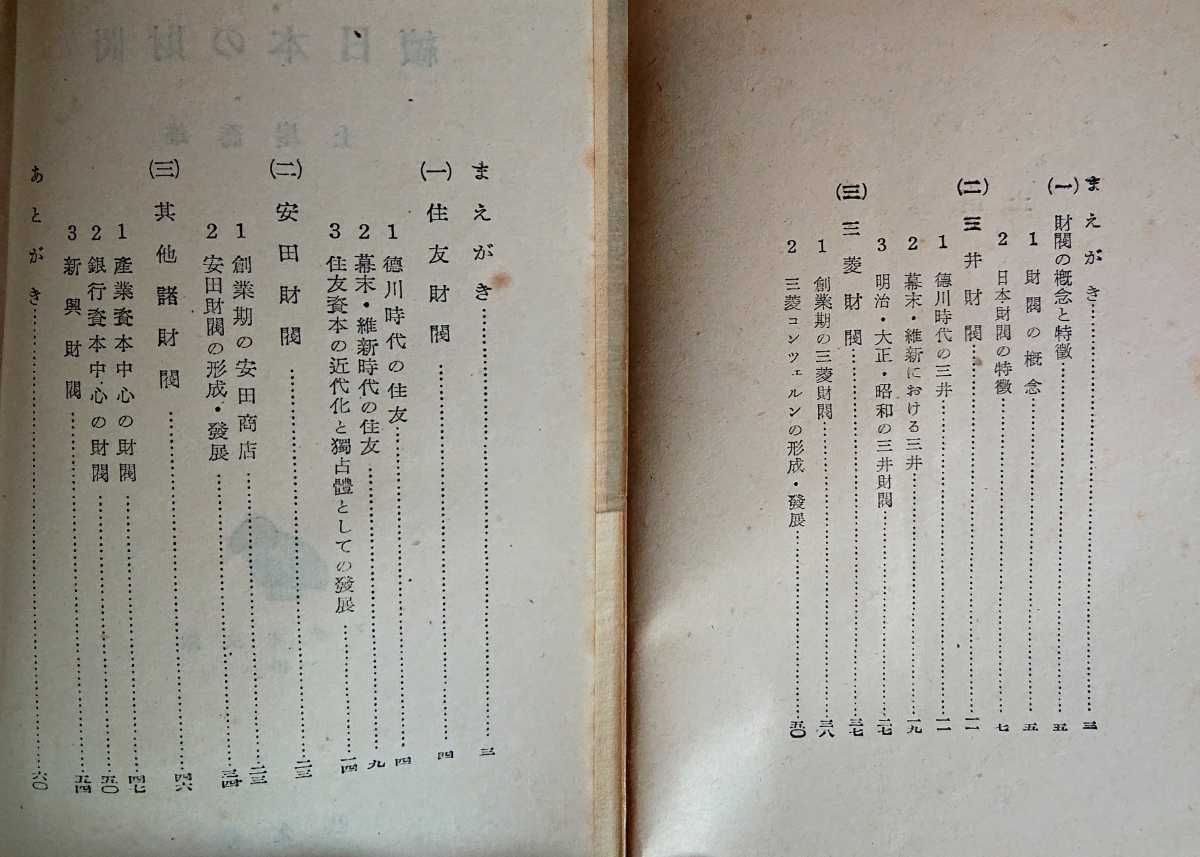 まえがき……三
(一) 財閥の概念と特徴……五
1 財閥の概念……五
2 日本財閥の特徴……七
(二) 三井財閥……一一
1 德川時代の三井……一一
2 幕末・維新における三井……一九
3 明治・大正・昭和の三井財閥……二七
(三) 三菱財閥……三七
1 創業期の三菱財閥……三八
2 三菱コンツェルンの形成・發展……五〇
まえがき……三
(一) 住友財閥……四
1 德川時代の住友……四
2 幕末・維新時代の住友……九
3 住友資本の近代化と獨占體としての發展……一四
(二) 安田財閥……二三
1 創業期の安田商店……二三
2 安田財閥の形成・發展……三四
(三) 其他諸財閥……四六
1 產業資本中心の財閥……四七
2 銀行資本中心の財閥……五〇
3 新興財閥……五四
あとがき……六〇